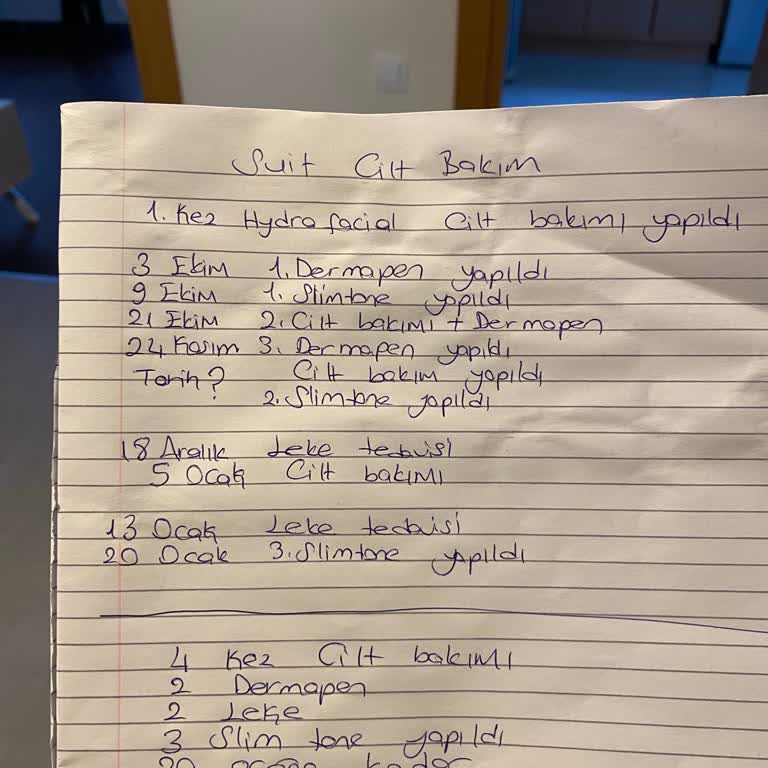 Suit Cilt Bakım
1. Kez Hydrafacial Cilt bakımı yapıldı
3 Ekim 1. Dermapen yapıldı
9 Ekim 1. Slimtone yapıldı
21 Ekim 2. Cilt bakımı + Dermapen
24 Kasım 3. Dermapen yapıldı
Tarih? Cilt bakım yapıldı
2. Slimtone yapıldı
18 Aralık Leke tedavisi
5 Ocak Cilt bakımı
13 Ocak Leke tedavisi
20 Ocak 3. Slimtone yapıldı
4 Kez Cilt bakımı
2 Dermapen
2 Leke
3 Slim tone yapıldı
20 kadar